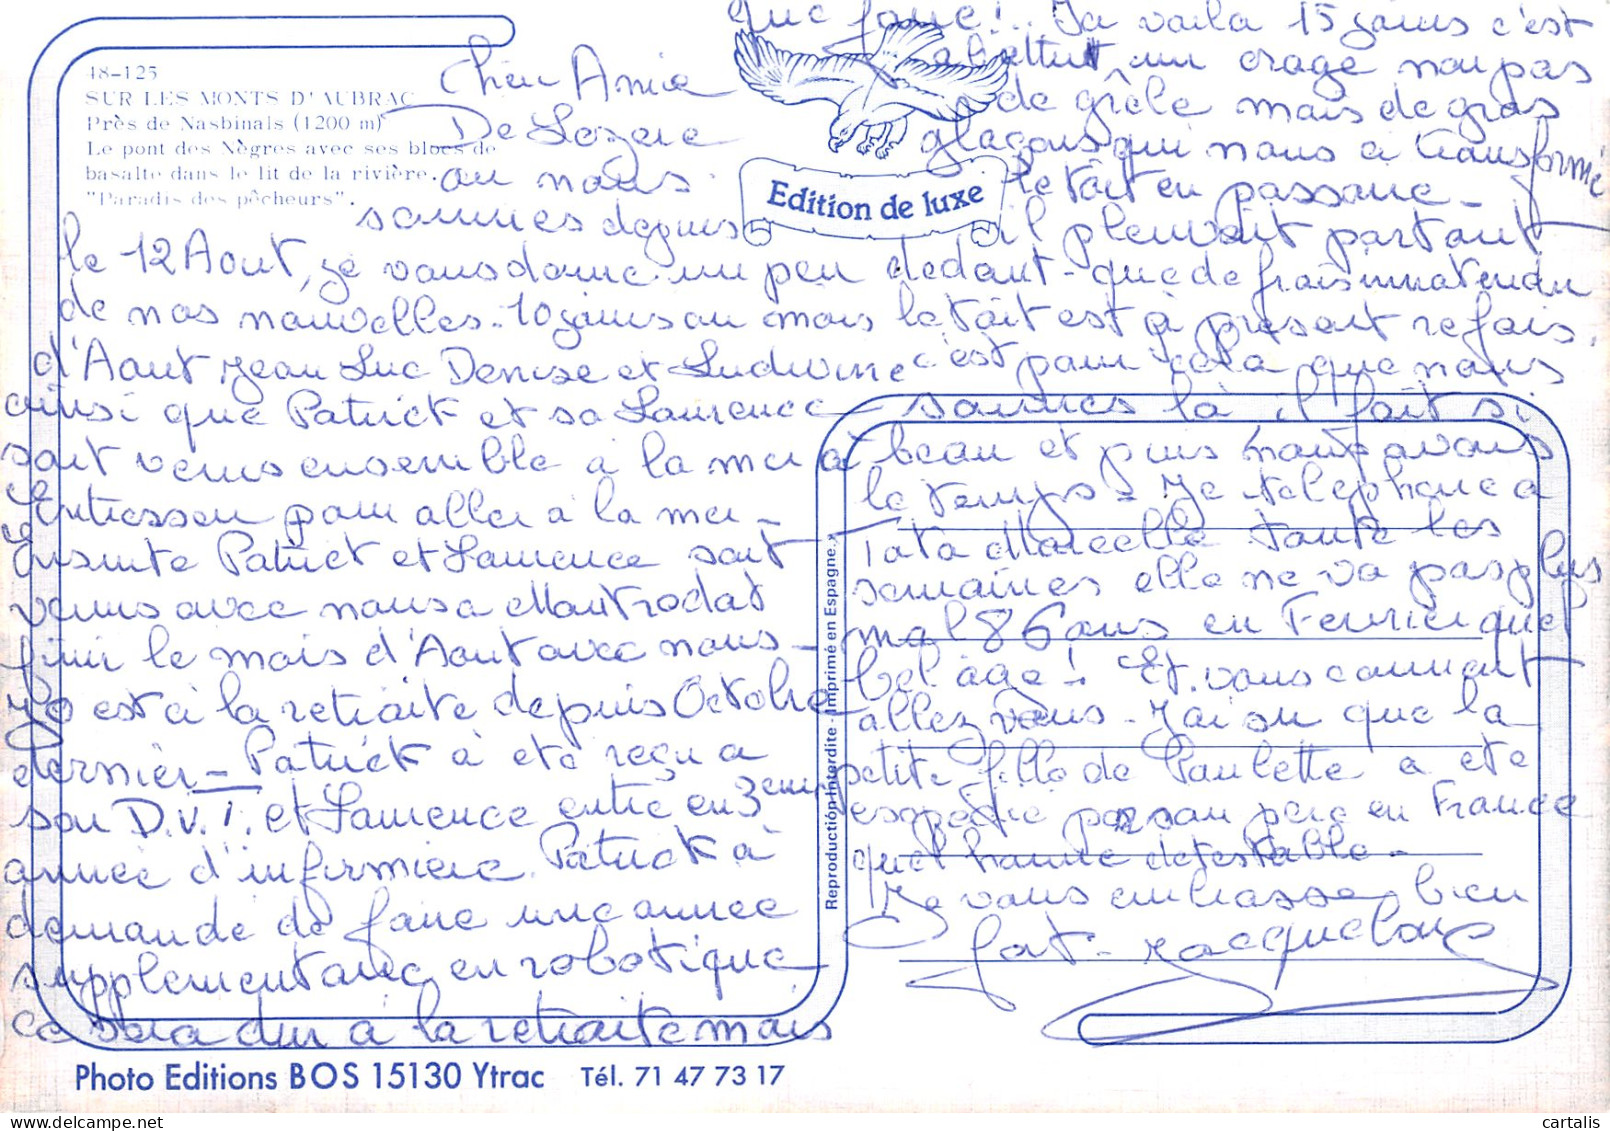 48-125
SUR LES MONTS D'AUBRAC
Près de Nasbinals (1200 m)
Le pont des Nègres avec ses blocs de
basalte dans le lit de la rivière.
"Paradis des pêcheurs".
Edition de luxe
De Lozere
ou nous
sommes depuis
le 12 Aout, je vous donne un peu
de nos nouvelles. 10 jours au mois
d'Aout Jean Luc Denise et Ludivine
ainsi que Patrick et sa Laurence
sont venus ensemble à la mer à
pour aller à la mer -
Ensuite Patrick et Laurence sont
venus avec nous a Montrodat
finir le mois d'Aout avec nous -
Jo est à la retraite depuis Octobre
dernier - Patrick à eté reçu a
son D.V.T. et Laurence entre en 3eme
année d'infirmiere Patrick à
demande de faire une annee
supplementaire en robotique
ca sera dur à la retraite mais
que faire !.. Ja voila 15 jours c'est
abattut un orage non pas
de grêle mais de gros
glaçons qui nous a transformé
le toit en passoire -
il pleuvait partout
dedant - que de frais innatendu
le toit est à présent refais.
c'est pour cela que nous
sommes là il fait si
beau et puis nous avons
le temps - Je telephone a
Tata Marcelle toute les
semaines elle ne va pas plus
mal 86 ans en Fevrier quel
bel âge ! Et vous comment
allez vous - J'ai su que la
petite fille de Paulette a ete
espedie par son pere en France
quel homme detestable -
Je vous embrasse bien
fort - Jacqueline
Reproduction Interdite - Imprimé en Espagne.
Photo Editions BOS 15130 Ytrac Tél. 71 47 73 17
cartalis